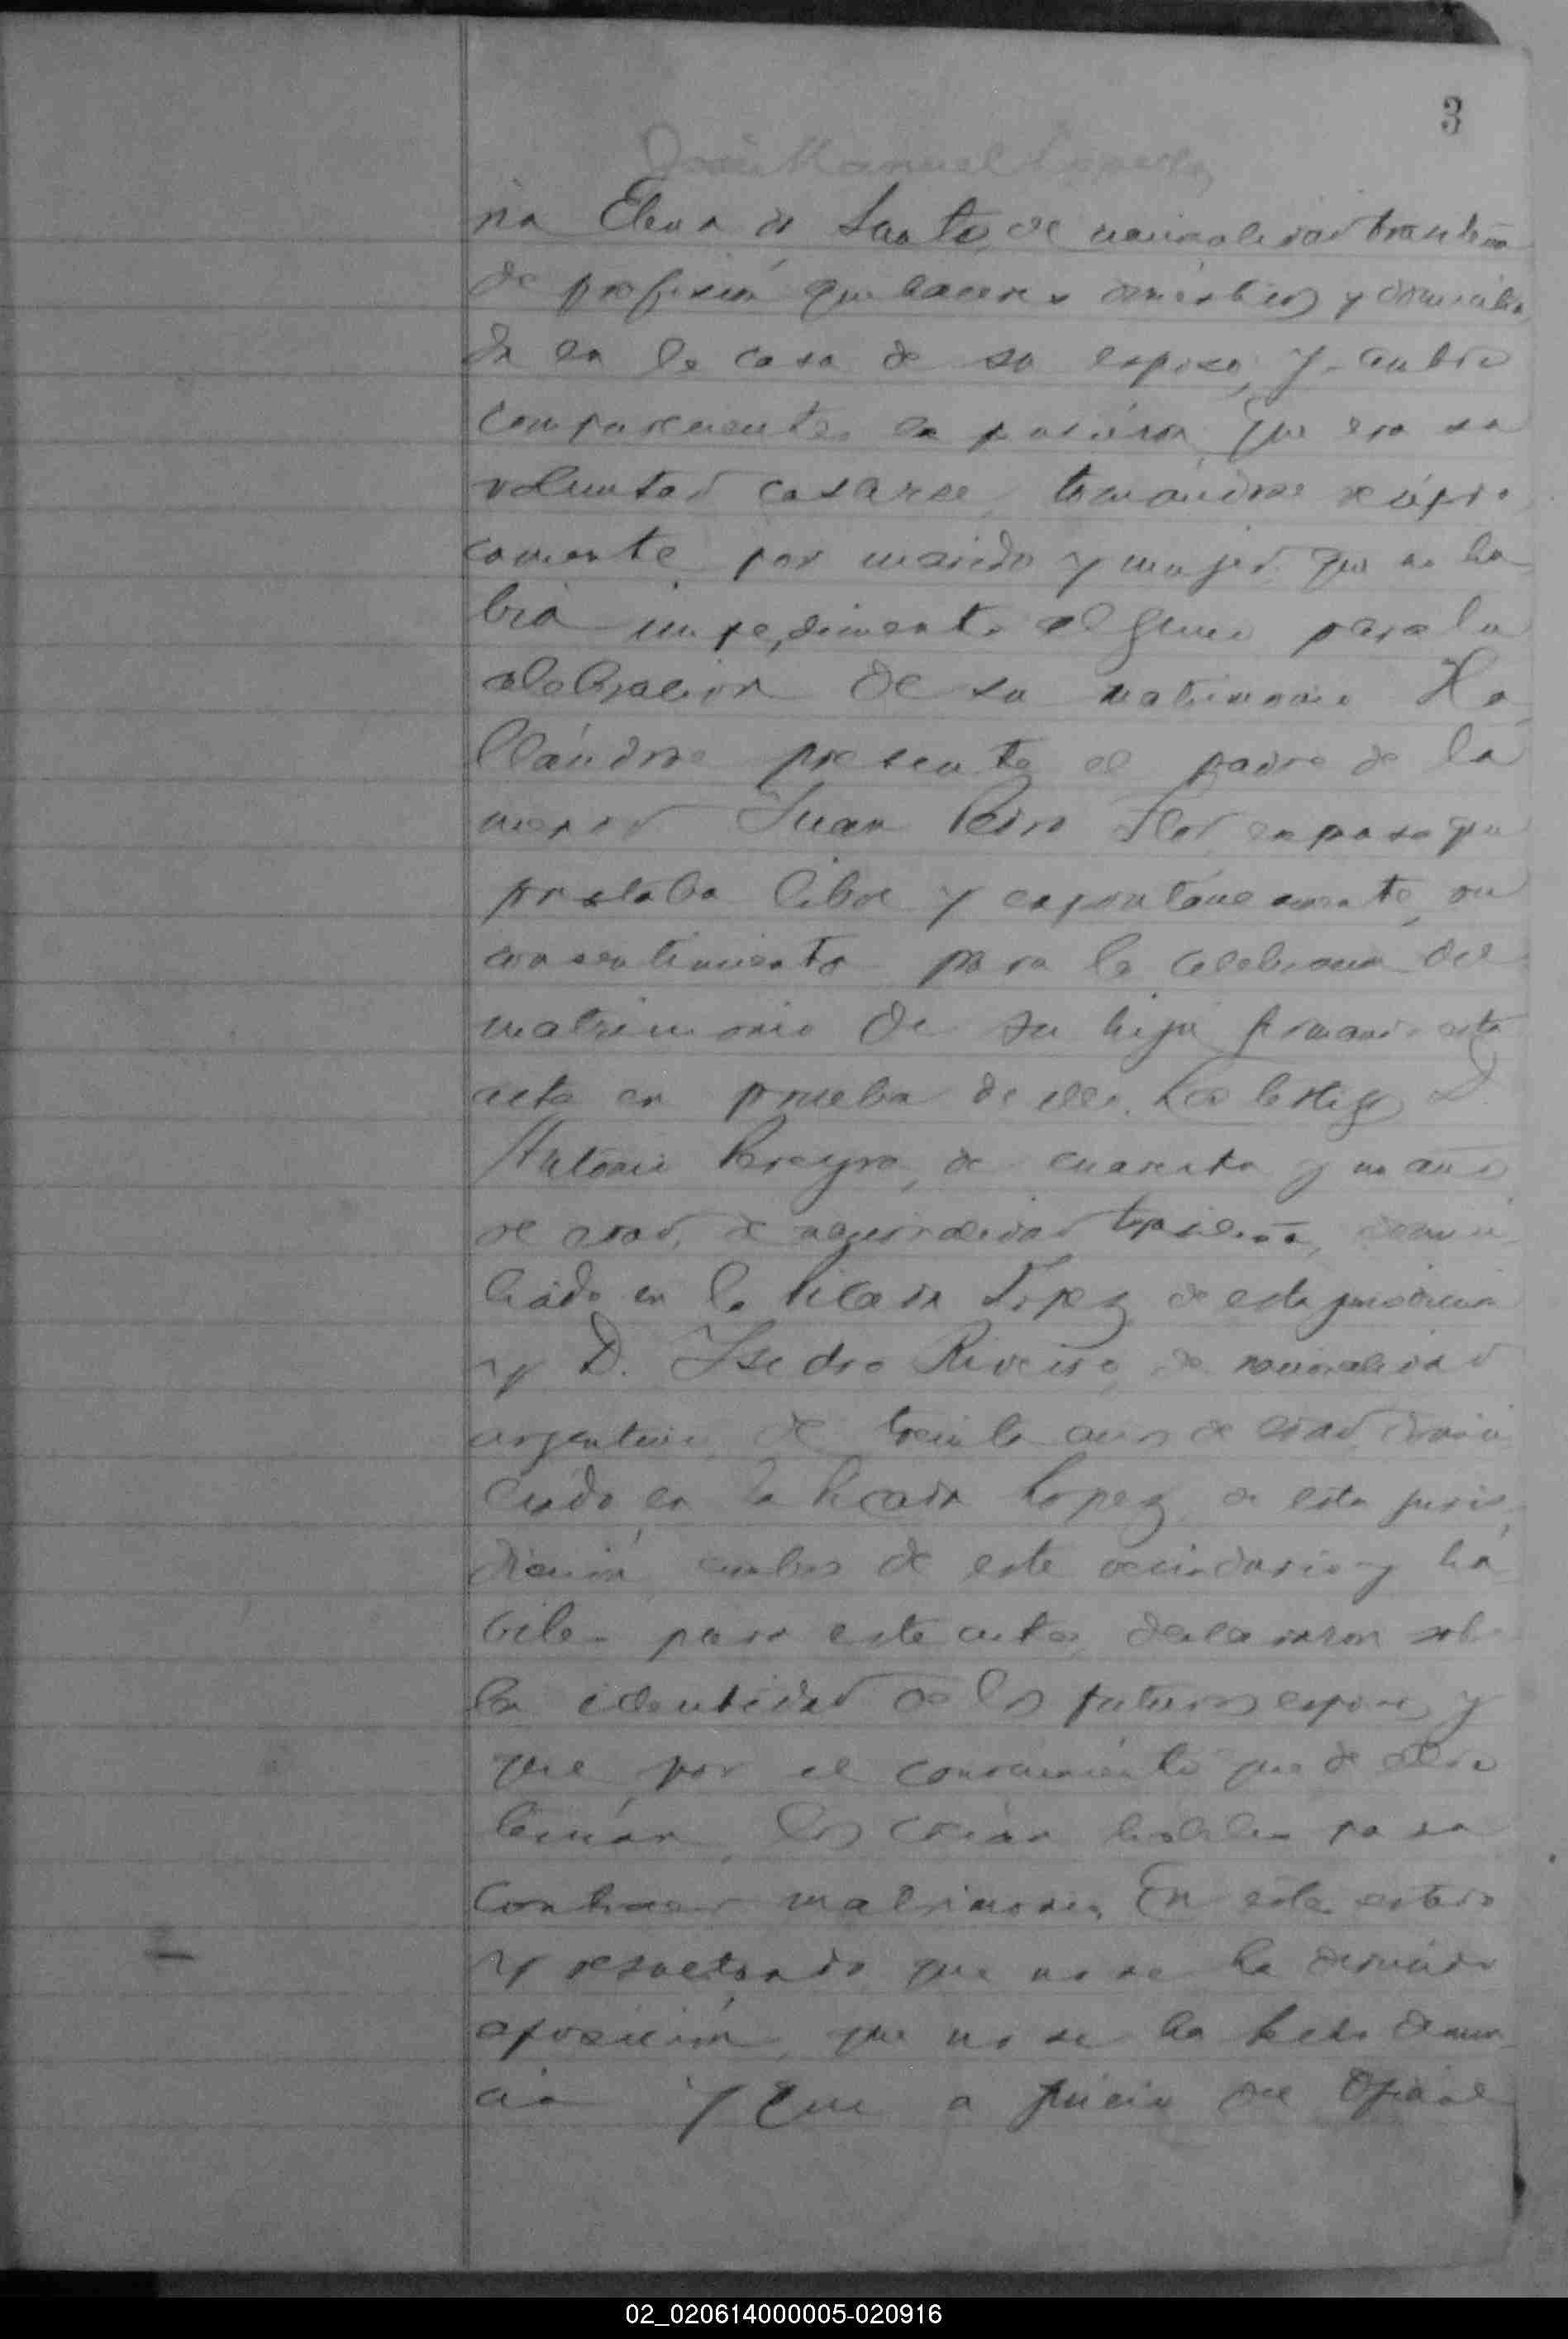 3
José Manuel
ria Elena de Santos, de nacionalidad brasilera
de profesión quehaceres domésticos y domicilia
da en la casa de su esposo, y ambos
comparecientes expusieron que era su
voluntad casarse, tomándose recípro
camente por marido y mujer que no ha
bía impedimento alguno para la
celebracion de su matrimonio Ha
llándose presente el padre de la
menor Juan Pedro Flor, expuso que
prestaba libre y expontáneamente, su
consentimiento para la celebracion del
matrimonio de su hija firmando esta
acta en prueba de ello. Los testigos D.
Antonio Pereyra, de cuarenta y un años
de edad, de nacionalidad brasilera, domici
liado en la Picada Lopez de esta jurisdiccion
y D. Isidro Riveiro, de nacionalidad
argentina, de treinta años de edad, domici
liado en la Picada Lopez, de esta juris
dicción, ambos de este vecindario y há
biles para este acto, declararon sobre
la identidad de los futuros esposos y
que por el conocimiento que de ellos
tenían, los creían hábiles para
contraer matrimonio, En este estado
y resultando que no se ha deducido
oposición, que no se ha hecho denun
cia y que a juicio del Oficial
02_020614000005-020916